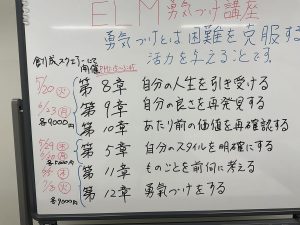 ELM 勇気づけ講座
勇気づけとは困難を克服する
活力を与えることです。
創成スクエアにて
開催
5/20(火) 第8章 自分の人生を引き受ける
6/23(月) 第9章 自分の良さを再発見する
各9000円 第10章 あたり前の価値を再確認する
第5章 自分のスタイルを明確にする
第11章 ものごとを前向に考える
(火) 第12章 勇気づけをする
各9000円